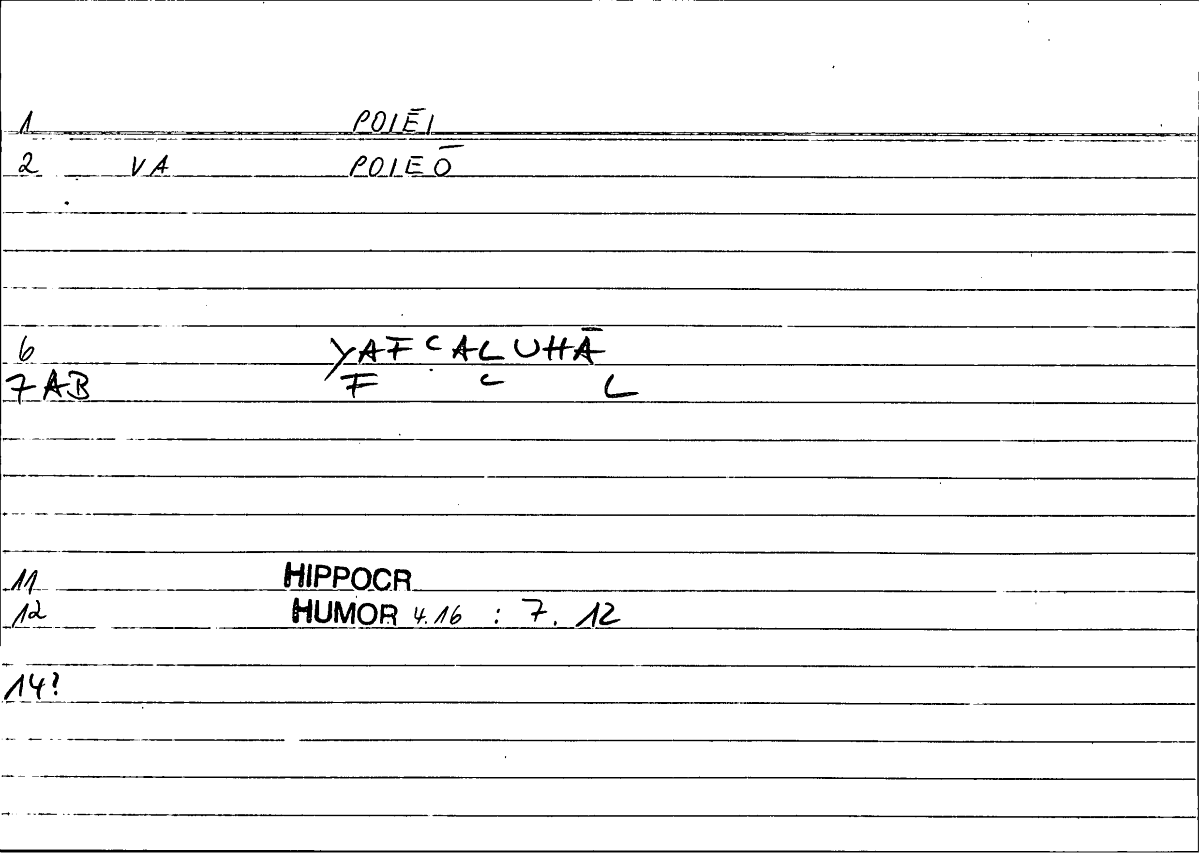 1 POIĒI
2 VA POIEŌ
6 YAFʿALUHĀ
7AB F ʿ L
11 HIPPOCR
12 HUMOR 4.16 : 7. 12
14?